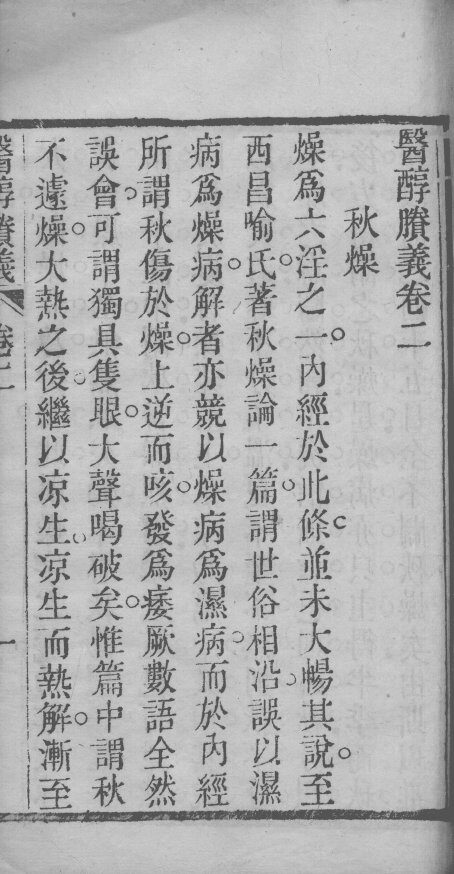 醫醇賸義卷二
秋燥
燥爲六淫之一。內經於此條。並未大暢其說。至
西昌喻氏。著秋燥論一篇。謂世俗相沿。誤以濕
病爲燥病。解者亦競以燥病爲濕病。而於內經
所謂秋傷於燥。上逆而咳。發爲痿厥數語。全然
誤會。可謂獨具隻眼。大聲喝破矣。惟篇中謂秋
不遽燥。大熱之後。繼以凉生。凉生而熱解。漸至
醫醇賸義 卷二 一